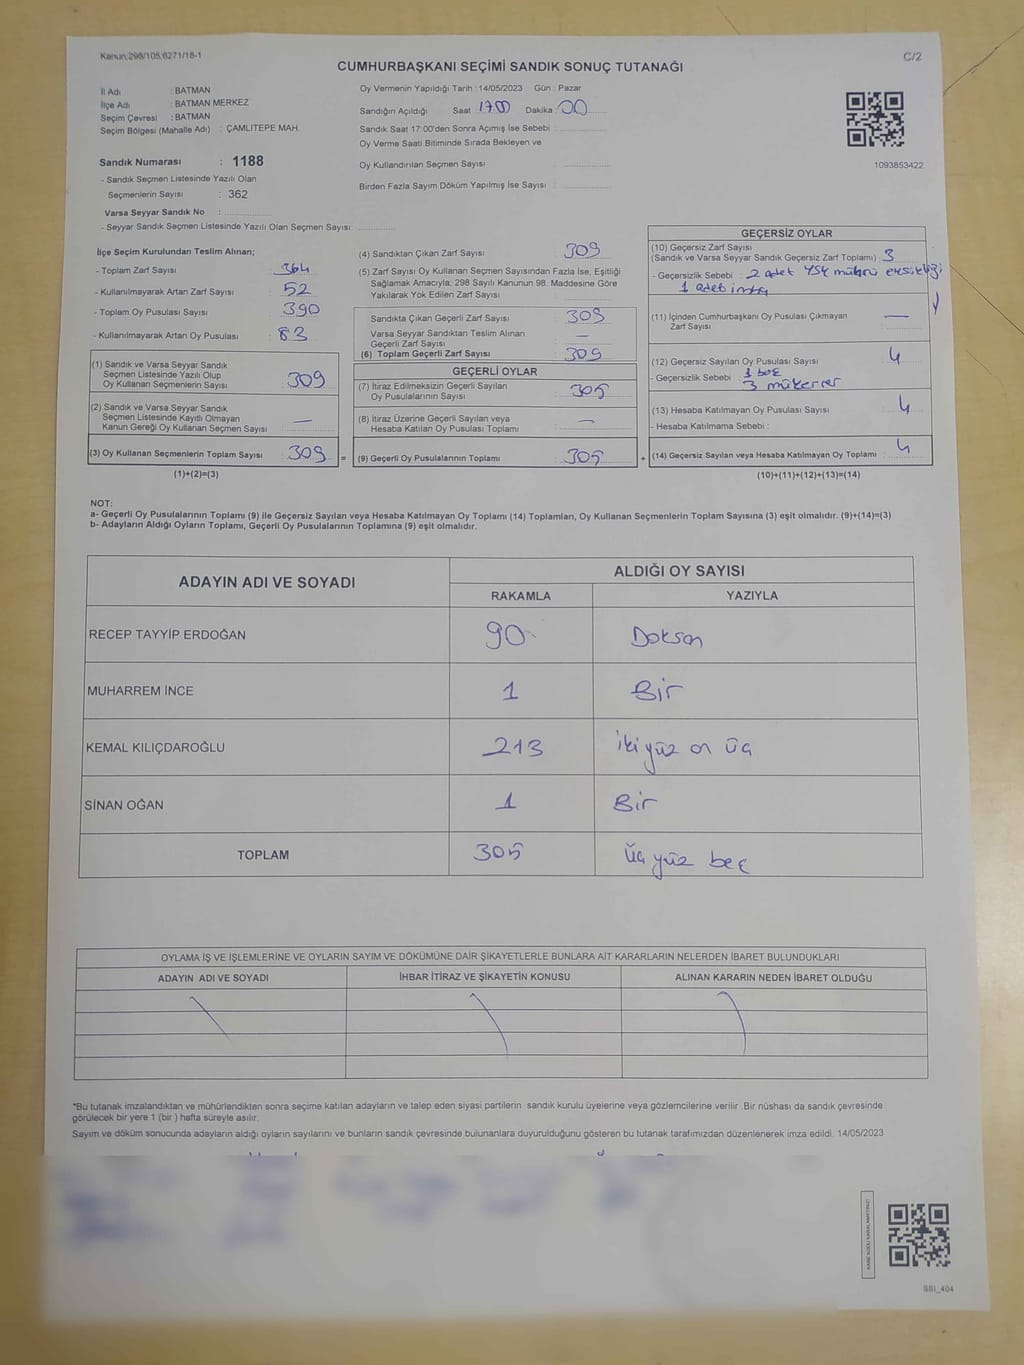 Kanun;298/105,6271/18-1
C/2
CUMHURBAŞKANI SEÇİMİ SANDIK SONUÇ TUTANAĞI
İl Adı : BATMAN
İlçe Adı : BATMAN MERKEZ
Seçim Çevresi : BATMAN
Seçim Bölgesi (Mahalle Adı) : ÇAMLITEPE MAH.
Sandık Numarası : 1188
- Sandık Seçmen Listesinde Yazılı Olan
Seçmenlerin Sayısı : 362
Varsa Seyyar Sandık No :
- Seyyar Sandık Seçmen Listesinde Yazılı Olan Seçmen Sayısı:
Oy Vermenin Yapıldığı Tarih : 14/05/2023 Gün : Pazar
Sandığın Açıldığı Saat 17.00 Dakika 00
Sandık Saat 17:00'den Sonra Açımış İse Sebebi :
Oy Verme Saati Bitiminde Sırada Bekleyen ve
Oy Kullandırılan Seçmen Sayısı :
Birden Fazla Sayım Döküm Yapılmış İse Sayısı :
1093853422
İlçe Seçim Kurulundan Teslim Alınan;
- Toplam Zarf Sayısı : 364
- Kullanılmayarak Artan Zarf Sayısı : 52
- Toplam Oy Pusulası Sayısı : 390
- Kullanılmayarak Artan Oy Pusulası : 83
(1) Sandık ve Varsa Seyyar Sandık
Seçmen Listesinde Yazılı Olup
Oy Kullanan Seçmenlerin Sayısı : 309
(2) Sandık ve Varsa Seyyar Sandık
Seçmen Listesinde Kayıtlı Olmayan
Kanun Gereği Oy Kullanan Seçmen Sayısı : —
(3) Oy Kullanan Seçmenlerin Toplam Sayısı : 309
(1)+(2)=(3)
(4) Sandıktan Çıkan Zarf Sayısı : 309
(5) Zarf Sayısı Oy Kullanan Seçmen Sayısından Fazla İse, Eşitliği
Sağlamak Amacıyla; 298 Sayılı Kanunun 98. Maddesine Göre
Yakılarak Yok Edilen Zarf Sayısı :
Sandıkta Çıkan Geçerli Zarf Sayısı : 309
Varsa Seyyar Sandıktan Teslim Alınan
Geçerli Zarf Sayısı : —
(6) Toplam Geçerli Zarf Sayısı : 309
GEÇERLİ OYLAR
(7) İtiraz Edilmeksizin Geçerli Sayılan
Oy Pusulalarının Sayısı : 305
(8) İtiraz Üzerine Geçerli Sayılan veya
Hesaba Katılan Oy Pusulası Toplamı : —
= (9) Geçerli Oy Pusulalarının Toplamı : 305 +
GEÇERSİZ OYLAR
(10) Geçersiz Zarf Sayısı
(Sandık ve Varsa Seyyar Sandık Geçersiz Zarf Toplamı) : 3
- Geçersizlik Sebebi : 2 adet YSK mührü eksikliği
1 adet imza
(11) İçinden Cumhurbaşkanı Oy Pusulası Çıkmayan
Zarf Sayısı : —
(12) Geçersiz Sayılan Oy Pusulası Sayısı : 4
- Geçersizlik Sebebi : 1 boş
3 mükerrer
(13) Hesaba Katılmayan Oy Pusulası Sayısı : 4
- Hesaba Katılmama Sebebi :
(14) Geçersiz Sayılan veya Hesaba Katılmayan Oy Toplamı : 4
(10)+(11)+(12)+(13)=(14)
NOT:
a- Geçerli Oy Pusulalarının Toplamı (9) ile Geçersiz Sayılan veya Hesaba Katılmayan Oy Pusulası (14) Toplamları, Oy Kullanan Seçmenlerin Toplam Sayısına (3) eşit olmalıdır. (9)+(14)=(3)
b- Adayların Aldığı Oyların Toplamı, Geçerli Oy Pusulalarının Toplamına (9) eşit olmalıdır.
ADAYIN ADI VE SOYADI
ALDIĞI OY SAYISI
RAKAMLA YAZIYLA
RECEP TAYYİP ERDOĞAN 90 Doksan
MUHARREM İNCE 1 Bir
KEMAL KILIÇDAROĞLU 213 İki yüz on üç
SİNAN OĞAN 1 Bir
TOPLAM 305 Üç yüz beş
OYLAMA İŞ VE İŞLEMLERİNE VE OYLARIN SAYIM VE DÖKÜMÜNE DAİR ŞİKAYETLERLE BUNLARA AİT KARARLARIN NELERDEN İBARET BULUNDUKLARI
ADAYIN ADI VE SOYADI İHBAR İTİRAZ VE ŞİKAYETİN KONUSU ALINAN KARARIN NEDEN İBARET OLDUĞU
*Bu tutanak imzalandıktan ve mühürlendikten sonra seçime katılan adayların ve talep eden siyasi partilerin sandık kurulu üyelerine veya gözlemcilerine verilir. Bir nüshası da sandık çevresinde
görülecek bir yere 1 (bir ) hafta süreyle asılır.
Sayım ve döküm sonucunda adayların aldığı oyların sayılarını ve bunların sandık çevresinde bulunanlara duyurulduğunu gösteren bu tutanak tarafımızdan düzenlenerek imza edildi. 14/05/2023
KARE KODU KARALAMAYINIZ!
SSI_404